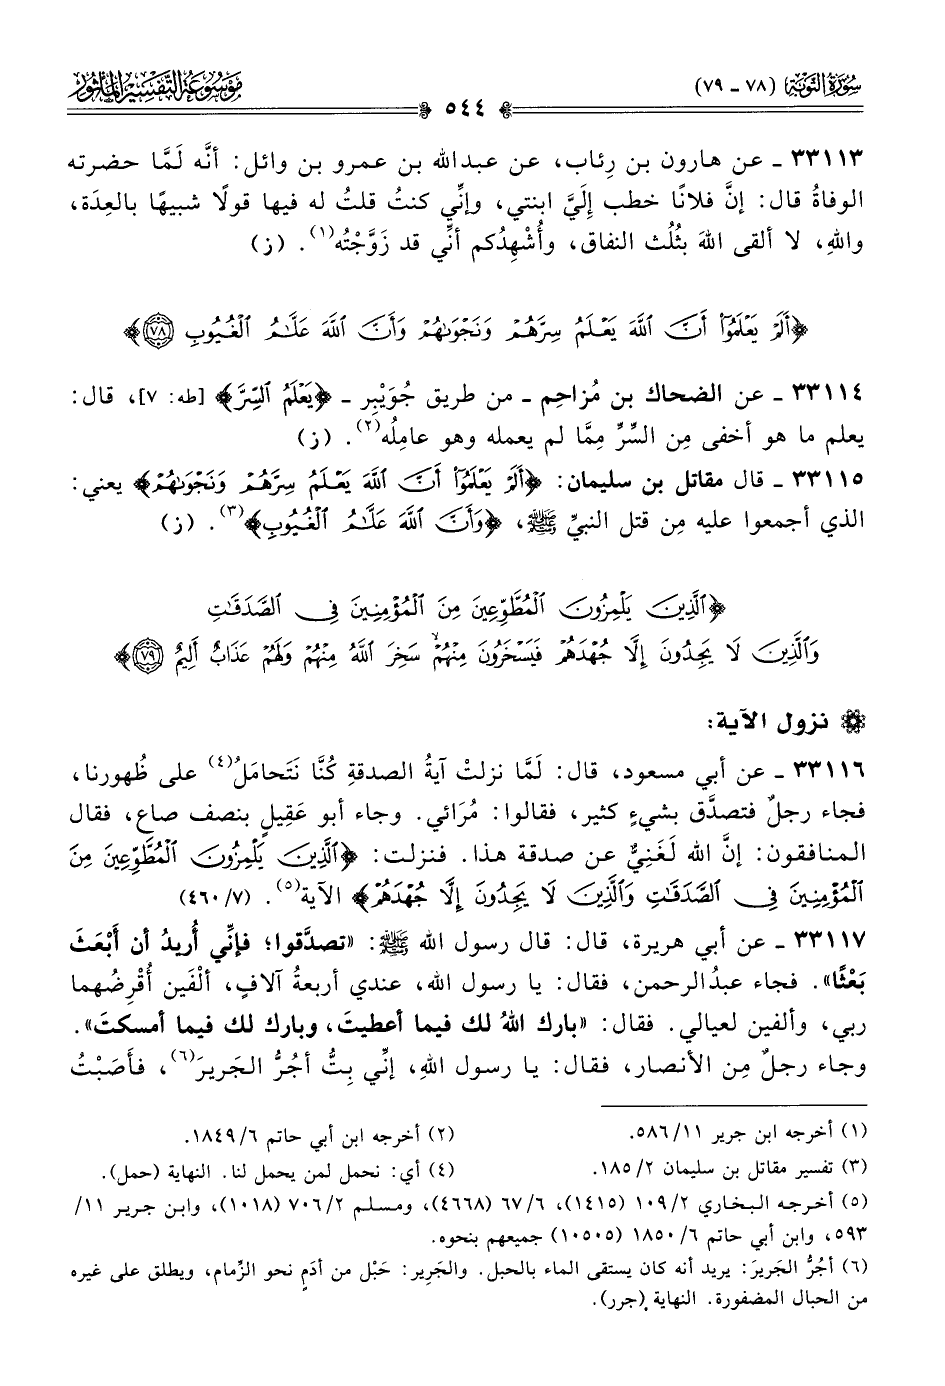 سُورَةُ التَّوْبَةِ (٧٨ - ٧٩)
مَوْسُوعَةُ التَّفْسِيرِ المَأْثُور
٥٤٤
٣٣١١٣ ـ عن هارون بن رِئاب، عن عبدالله بن عمرو بن وائل: أنَّه لَمَّا حضرته
الوفاةُ قال: إنَّ فلانًا خطب إلَيَّ ابنتي، وإنِّي كنتُ قلتُ له فيها قولًا شبيهًا بالعِدَة،
واللهِ، لا ألقى اللهَ بثُلُث النفاق، وأُشْهِدُكم أنِّي قد زَوَّجْتُه(١). (ز)
﴿أَلَمْ يَعْلَمُوٓا۟ أَنَّ ٱللَّهَ يَعْلَمُ سِرَّهُمْ وَنَجْوَىٰهُمْ وَأَنَّ ٱللَّهَ عَلَّـٰمُ ٱلْغُيُوبِ ٧٨﴾
٣٣١١٤ ـ عن الضحاك بن مُزاحِم ـ من طريق جُوَيْبِر ـ ﴿يَعْلَمُ ٱلسِّرَّ﴾ [طه: ٧]، قال:
يعلم ما هو أخفى مِن السِّرِّ مِمَّا لم يعمله وهو عامِلُه(٢). (ز)
٣٣١١٥ ـ قال مقاتل بن سليمان: ﴿أَلَمْ يَعْلَمُوٓا۟ أَنَّ ٱللَّهَ يَعْلَمُ سِرَّهُمْ وَنَجْوَىٰهُمْ﴾ يعني:
الذي أجمعوا عليه مِن قتل النبيِّ ﷺ، ﴿وَأَنَّ ٱللَّهَ عَلَّـٰمُ ٱلْغُيُوبِ﴾(٣). (ز)
﴿ٱلَّذِينَ يَلْمِزُونَ ٱلْمُطَّوِّعِينَ مِنَ ٱلْمُؤْمِنِينَ فِى ٱلصَّدَقَـٰتِ
وَٱلَّذِينَ لَا يَجِدُونَ إِلَّا جُهْدَهُمْ فَيَسْخَرُونَ مِنْهُمْ ۙ سَخِرَ ٱللَّهُ مِنْهُمْ وَلَهُمْ عَذَابٌ أَلِيمٌ ٧٩﴾
نزول الآية:
٣٣١١٦ ـ عن أبي مسعود، قال: لَمَّا نزلتْ آيةُ الصدقةِ كُنَّا نَتَحامَلُ(٤) على ظُهورنا،
فجاء رجلٌ فتصدَّق بشيءٍ كثير، فقالوا: مُرَائي. وجاء أبو عَقِيلٍ بنصف صاع، فقال
المنافقون: إنَّ الله لَغَنِيٌّ عن صدقة هذا. فنزلت: ﴿ٱلَّذِينَ يَلْمِزُونَ ٱلْمُطَّوِّعِينَ مِنَ
ٱلْمُؤْمِنِينَ فِى ٱلصَّدَقَـٰتِ وَٱلَّذِينَ لَا يَجِدُونَ إِلَّا جُهْدَهُمْ﴾ الآية(٥). (٤٦٠/٧)
٣٣١١٧ ـ عن أبي هريرة، قال: قال رسول الله ﷺ: «تصدَّقوا؛ فإنِّي أُريدُ أن أَبْعَثَ
بَعْثًا». فجاء عبدُالرحمن، فقال: يا رسول الله، عندي أربعةُ آلافٍ، ألْفَين أُقْرِضُهما
ربي، وألفين لعيالي. فقال: «بارك اللهُ لك فيما أعطيتَ، وبارك لك فيما أمسكتَ».
وجاء رجلٌ مِن الأنصار، فقال: يا رسول اللهِ، إنِّي بِتُّ أجُرُّ الجَريرَ(٦)، فأصَبْتُ
(١) أخرجه ابن جرير ٥٨٦/١١.
(٢) أخرجه ابن أبي حاتم ١٨٤٩/٦.
(٣) تفسير مقاتل بن سليمان ١٨٥/٢.
(٤) أي: نحمل لمن يحمل لنا. النهاية (حمل).
(٥) أخرجه البخاري ١٠٩/٢ (١٤١٥)، ٦٧/٦ (٤٦٦٨)، ومسلم ٧٠٦/٢ (١٠١٨)، وابن جرير ١١/
٥٩٣، وابن أبي حاتم ١٨٥٠/٦ (١٠٥٠٥) جميعهم بنحوه.
(٦) أجُرُّ الجَريرَ: يريد أنه كان يستقى الماء بالحبل. والجَرِير: حَبْل من أدَمٍ نحو الزِّمام، ويطلق على غيره
من الحبال المضفورة. النهاية (جرر).